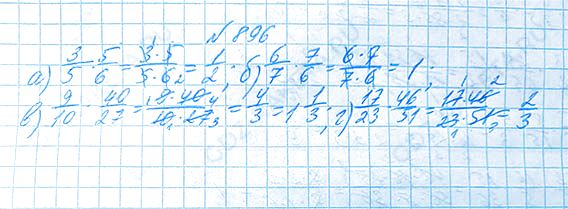 № 896
а) 3/5 · 5/6 = 3·5/5·6 = 1/2; б) 6/7 · 7/6 = 6·7/7·6 = 1;
в) 9/10 · 40/27 = 9·40/10·27 = 4/3 = 1 1/3; г) 17/23 · 46/51 = 17·46/23·51 = 2/3